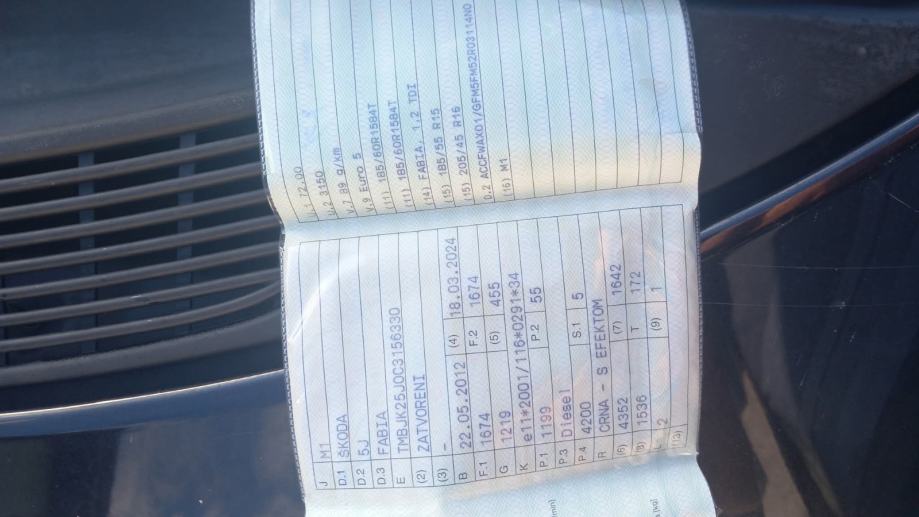 J M1
D.1 ŠKODA
D.2 5J
D.3 FABIA
E TMBJK25J0C3156330
(2) ZATVORENI
(3) -
B 22.05.2012 (4) 18.03.2024
F.1 1674 F.2 1674
G 1219 (5) 455
K e11*2001/116*0291*34
P.1 1199 P.2 55
P.3 Diesel
P.4 4200 S.1 5
R CRNA - S EFEKTOM
(6) 4352 (7) 1642
(8) 1536 T 172
L 2 (9) 1
(13)
U.1 72.00
U.2 3150
V.7 89 g/km
V.9 Euro 5
(11) 185/60R1584T
(11) 185/60R1584T
(14) FABIA, 1.2 TDI
(15) 185/55 R15
(15) 205/45 R16
D.2 ACCFWAX01/GFM5FM52R03114N0
(16) M1